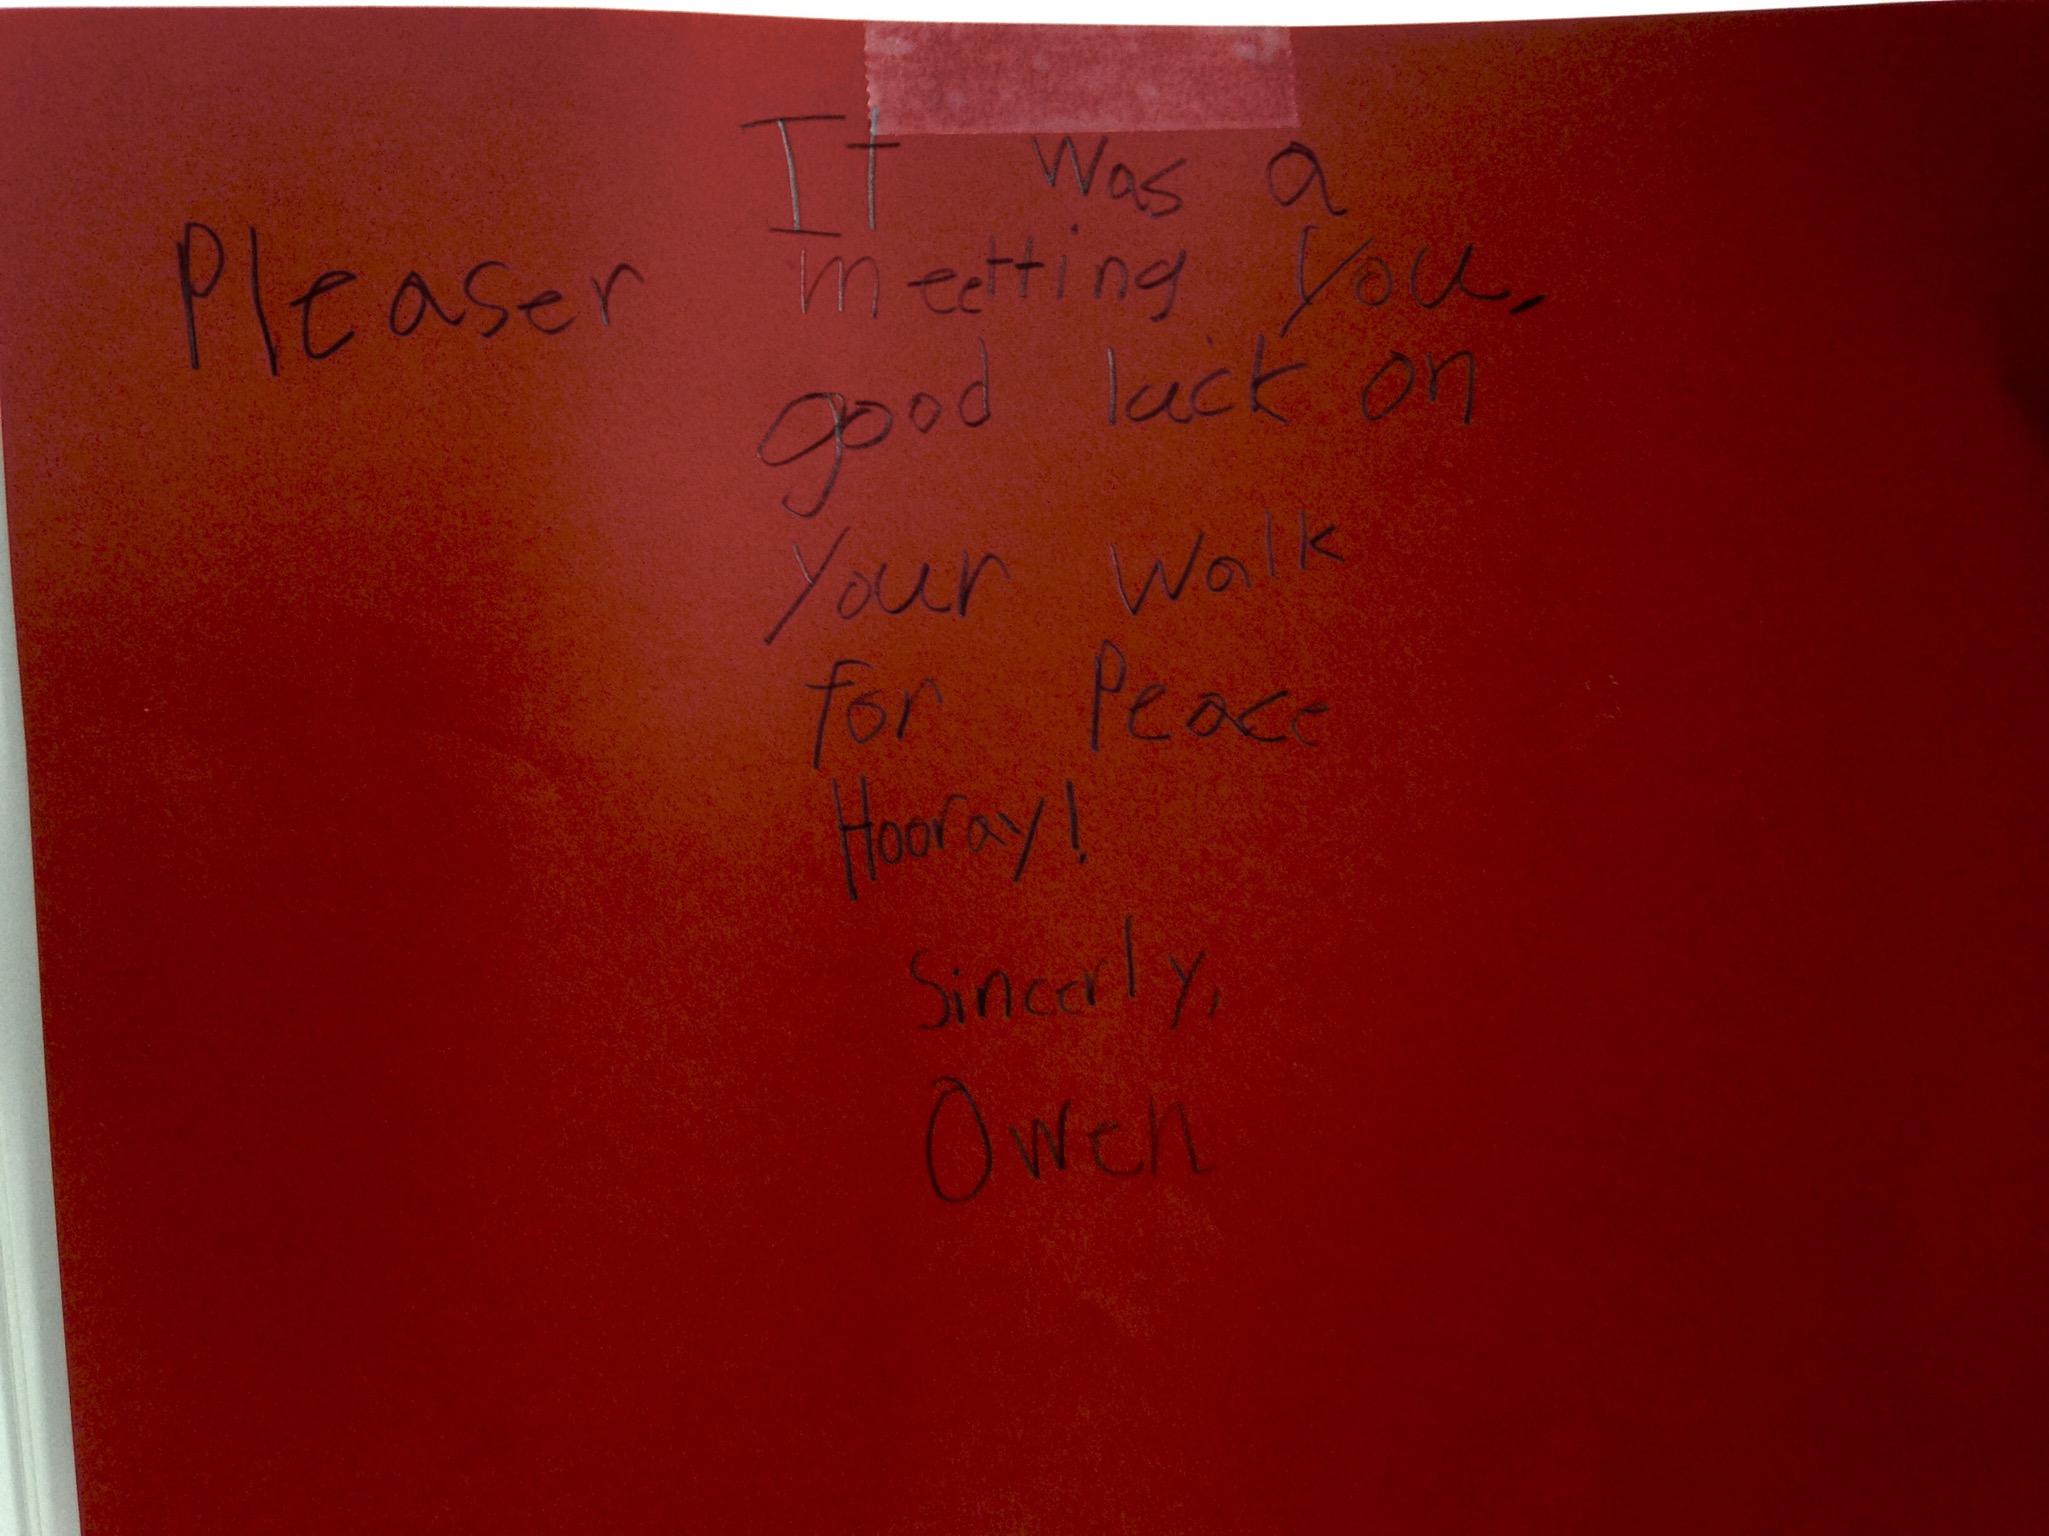 It was a
Pleaser meetting you,
good luck on
your walk
for Peace
Hooray!
Sincerly,
Owen